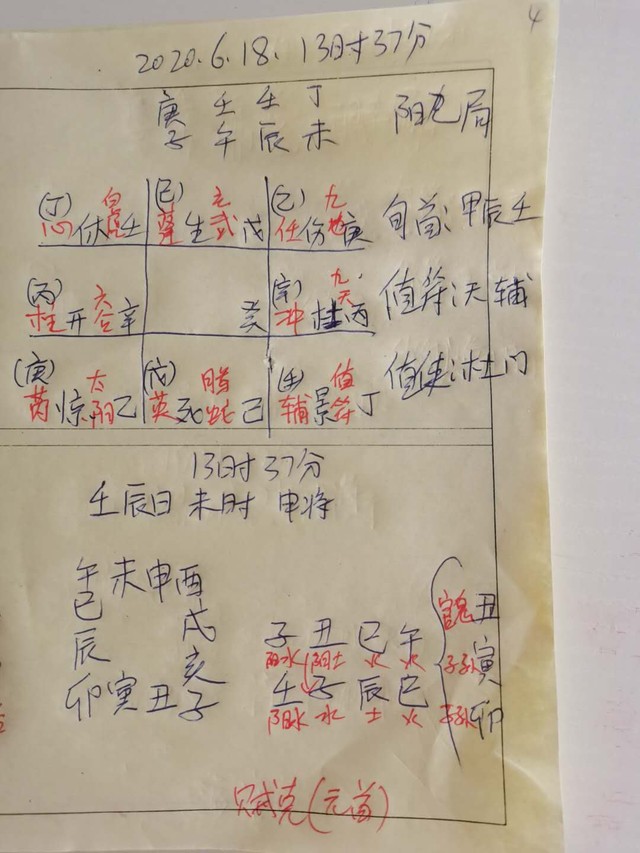 4
2020.6.18. 13时37分
庚 壬 壬 丁
子 午 辰 未
阳九局
(丁) 心休白虎壬
(己) 蓬生玄武戊
(乙) 任伤九地庚
旬首:甲辰壬
(丙) 柱开六合辛
癸
(辛) 冲杜九天丙
值符:天辅
(庚) 芮惊太阴乙
(戊) 英死腾蛇己
(壬) 辅景值符丁
值使:杜门
13时37分
壬辰日 未时 申将
午未申酉
巳 戌
辰 亥
卯寅丑子
子 丑 巳 午
阳水 阳土 火 火
壬 子 辰 巳
阳水 水 土 火
官鬼丑
子孙寅
子孙卯
贼克(元首)